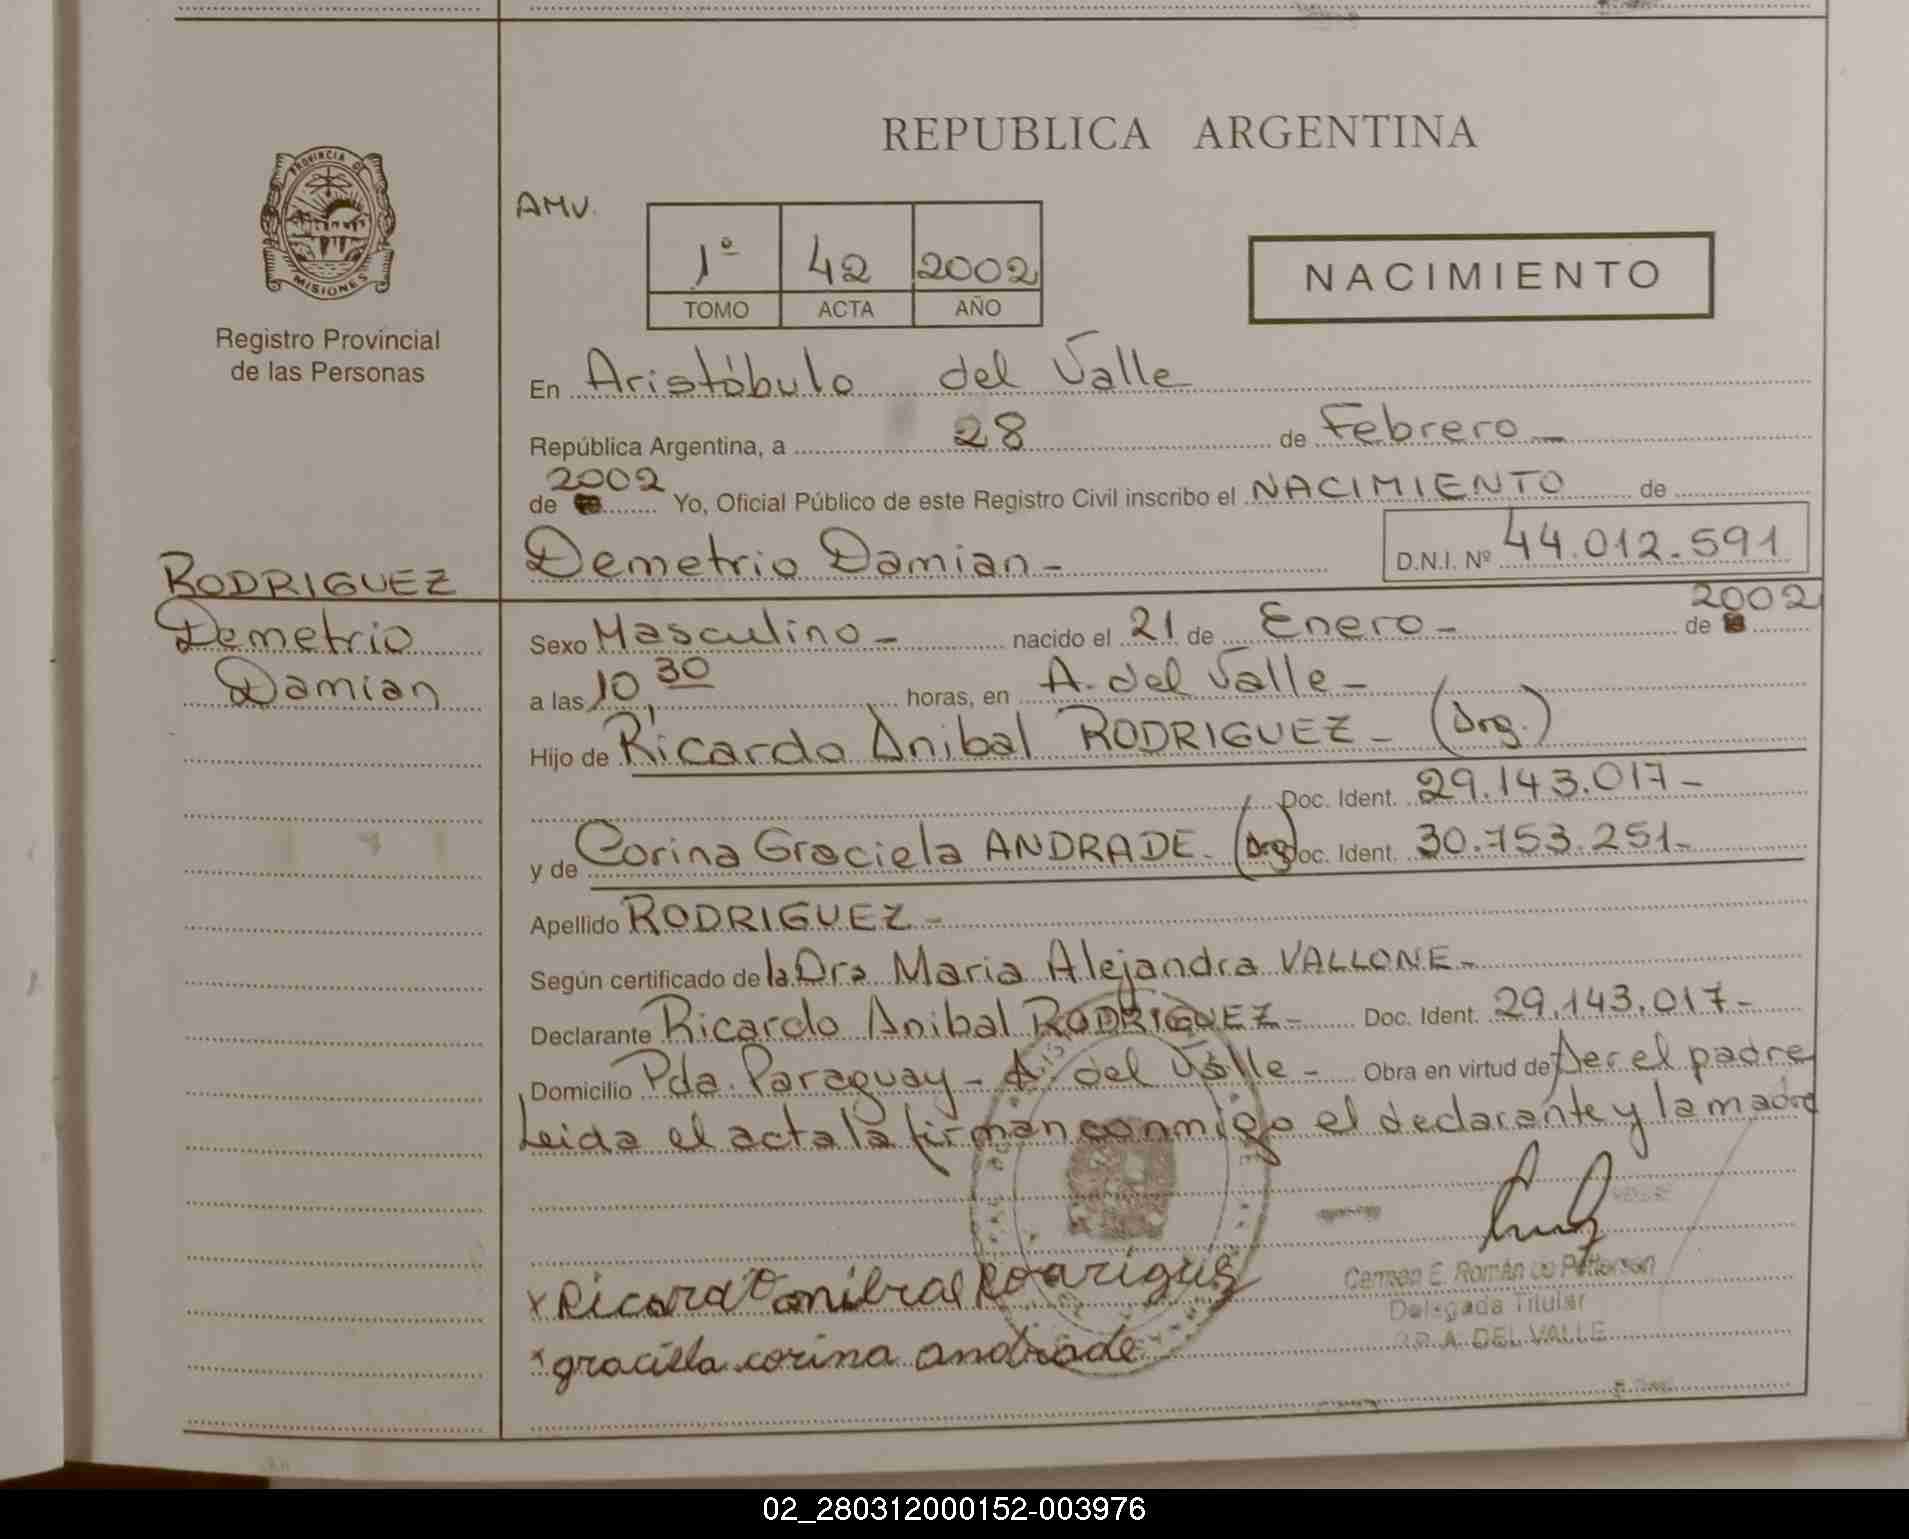 REPUBLICA ARGENTINA
PROVINCIA DE
MISIONES
Registro Provincial
de las Personas
AMV.
1º 42 2002
TOMO ACTA AÑO
NACIMIENTO
En Aristóbulo del Valle
República Argentina, a 28 de Febrero
2002
de Yo, Oficial Público de este Registro Civil inscribo el NACIMIENTO de
Demetrio Damian - D.N.I. Nº 44.012.591
RODRIGUEZ
Demetrio
Damian
2002
Sexo Masculino - nacido el 21 de Enero - de
a las 10,30 horas, en A. del Valle -
Hijo de Ricardo Anibal RODRIGUEZ - (Arg.)
Doc. Ident. 29.143.017 -
y de Corina Graciela ANDRADE. (Arg) Doc. Ident. 30.753.251 -
Apellido RODRIGUEZ -
Según certificado de la Dra Maria Alejandra VALLONE -
Declarante Ricardo Anibal RODRIGUEZ - Doc. Ident. 29.143.017 -
Domicilio Pda. Paraguay - A. del Valle - Obra en virtud de ser el padre
Leida el acta la firman conmigo el declarante y la madre
x Ricardo anibal Rodrigues
x graciela corina andrade
Carmen E. Román de Petterson
Delegada Titular
A. DEL VALLE
02_280312000152-003976